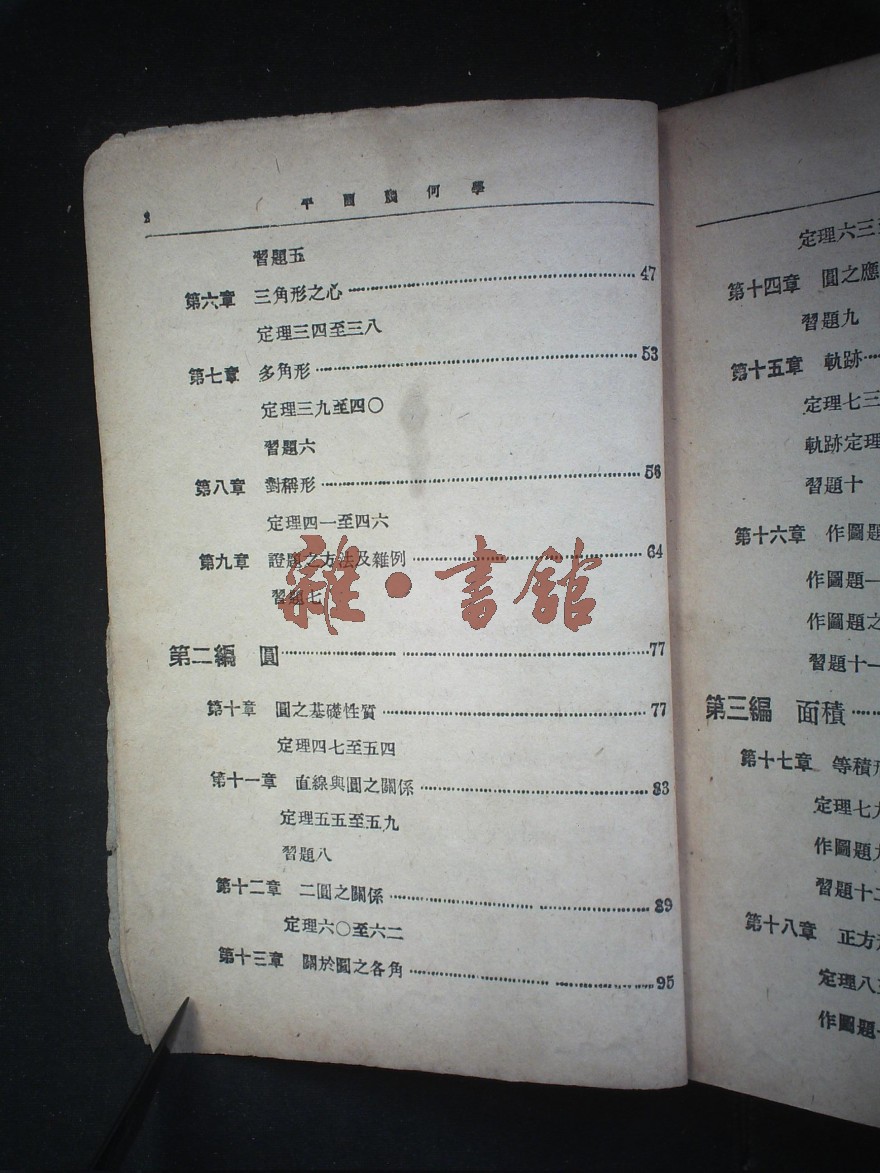 2 平面幾何學
習題五
第六章 三角形之心 47
定理三四至三八
第七章 多角形 53
定理三九至四〇
習題六
第八章 對稱形 56
定理四一至四六
第九章 證題之方法及雜例 64
習題七
雜·書館
第二編 圓 77
第十章 圓之基礎性質 77
定理四七至五四
第十一章 直線與圓之關係 83
定理五五至五九
習題八
第十二章 二圓之關係 89
定理六〇至六二
第十三章 關於圓之各角 95
定理六三
第十四章 圓之應
習題九
第十五章 軌跡
定理七三
軌跡定理
習題十
第十六章 作圖題
作圖題一
作圖題之
習題十一
第三編 面積
第十七章 等積
定理七九
作圖題
習題十二
第十八章 正方
定理八
作圖題